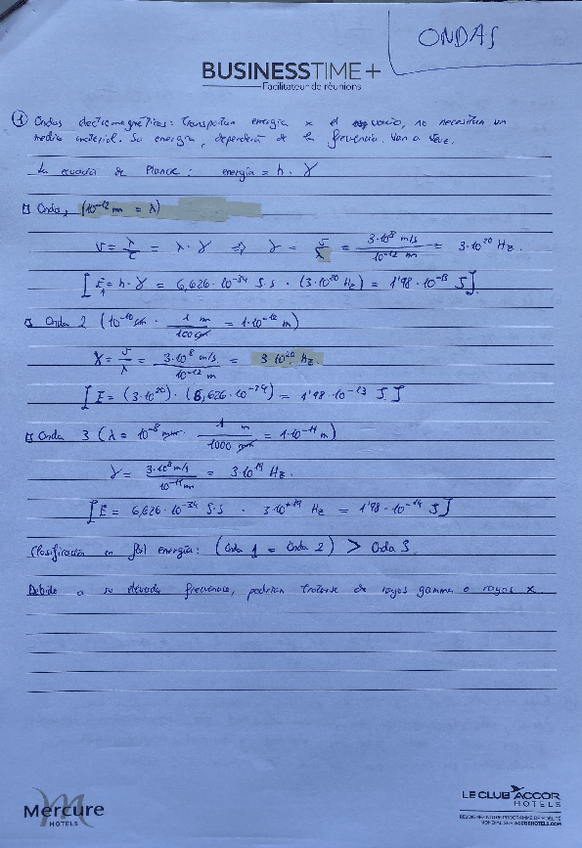 ONDAS
BUSINESSTIME+
Facilitateur de réunions
① Ondas electromagnéticas: transportan energía x el vacío, no necesitan un
medio material. Su energía, dependerá de la frecuencia. Van a
La ecuación de Planck: energía = h · γ
Onda 1 (10⁻¹² m = λ)
v = λ/τ = λ · γ ⇒ γ = v/λ = 3·10⁸ m/s / 10⁻¹² m = 3·10²⁰ Hz.
[E₁ = h · γ = 6,626·10⁻³⁴ J·s · (3·10²⁰ Hz) = 1'98·10⁻¹³ J].
Onda 2 (10⁻¹⁰ cm · 1 m / 100 cm = 1·10⁻¹² m)
γ = v/λ = 3·10⁸ m/s / 10⁻¹² m = 3·10²⁰ Hz.
[E = (3·10²⁰) · (6,626·10⁻³⁴) = 1'98·10⁻¹³ J]
Onda 3 (λ = 10⁻⁸ mm · 1 m / 1000 mm = 1·10⁻¹¹ m)
γ = 3·10⁸ m/s / 10⁻¹¹ m = 3·10¹⁹ Hz.
[E = 6,626·10⁻³⁴ J·s · 3·10⁺¹⁹ Hz = 1'98·10⁻¹⁴ J]
Clasificación en f(x) energía: (Onda 1 = Onda 2) > Onda 3.
Debido a su elevada frecuencia, podrían tratarse de rayos gamma o rayos x.
Mercure
HOTELS
LE CLUB ACCOR
HOTELS